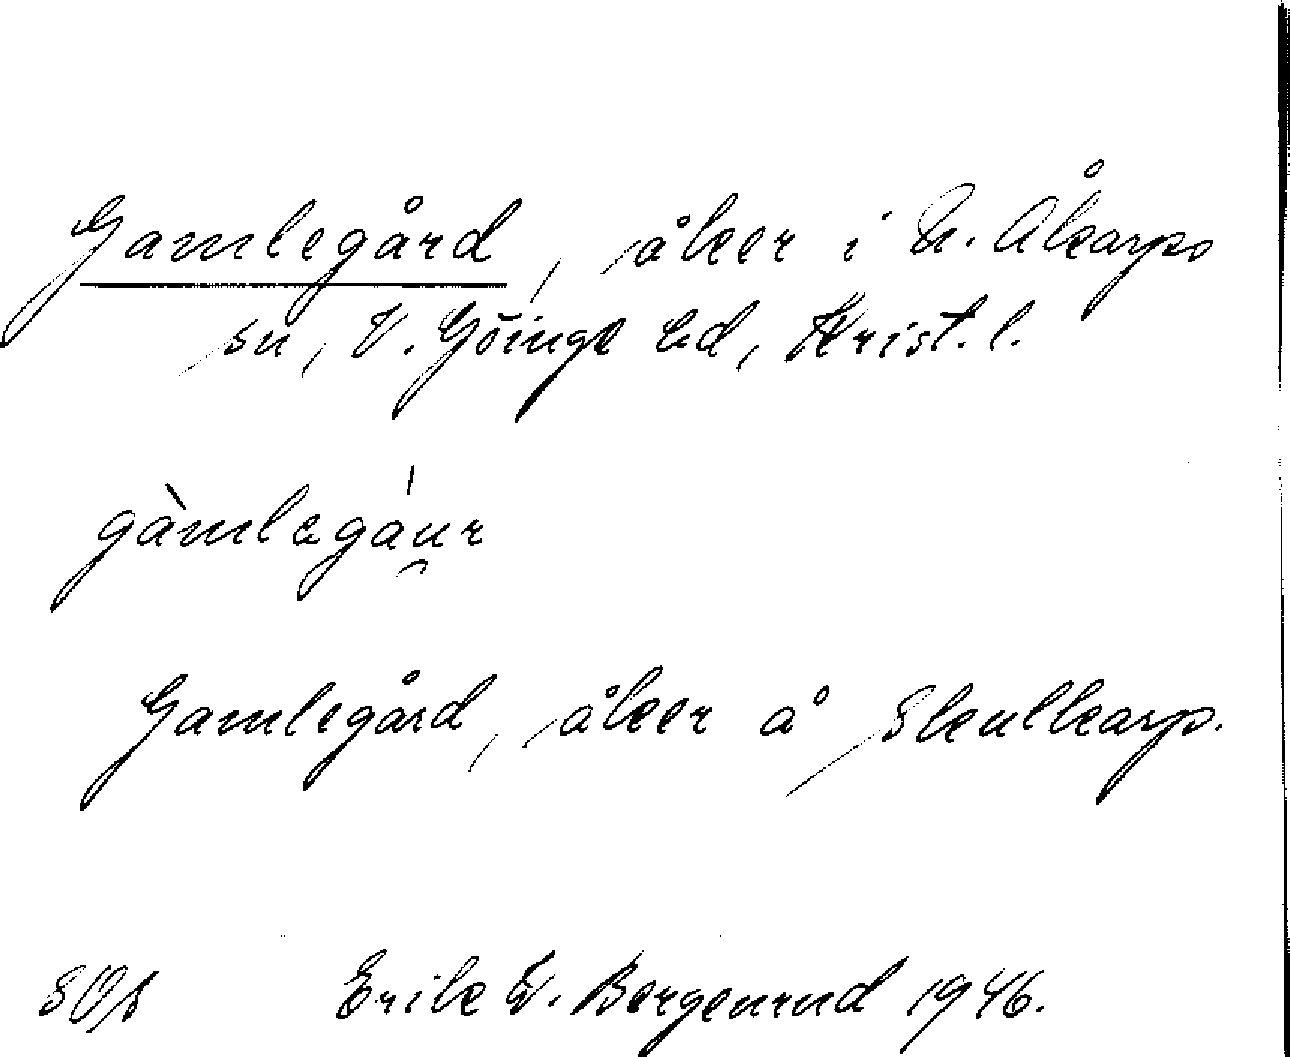 Gamlegård, åker i N. Åkarps
sn, V. Göinge hd, Krist. l.
gàmlegáu̯r
Gamlegård, åker å Skulkarp.
Erik F. Bergenrud 1946.